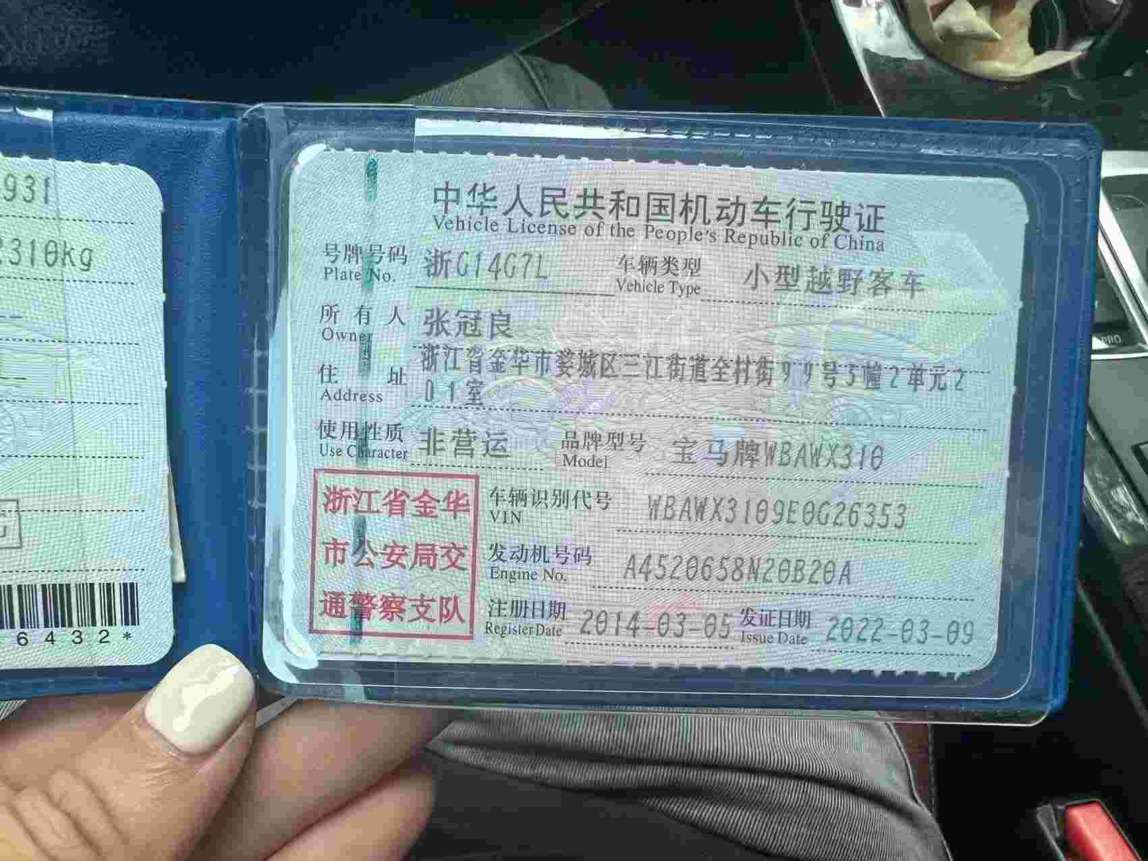 931
2310kg
6432*
中华人民共和国机动车行驶证
Vehicle License of the People's Republic of China
号牌号码 浙G14G7L 车辆类型 小型越野客车
Plate No. Vehicle Type
所有人 张冠良
Owner
住址 浙江省金华市婺城区三江街道全村街99号5幢2单元2
Address 01室
使用性质 非营运 品牌型号 宝马牌WBAWX310
Use Character Model
浙江省金华
市公安局交
通警察支队
车辆识别代号 WBAWX3109E0G26353
VIN
发动机号码 A4520658N20B20A
Engine No.
注册日期 2014-03-05 发证日期 2022-03-09
Register Date Issue Date